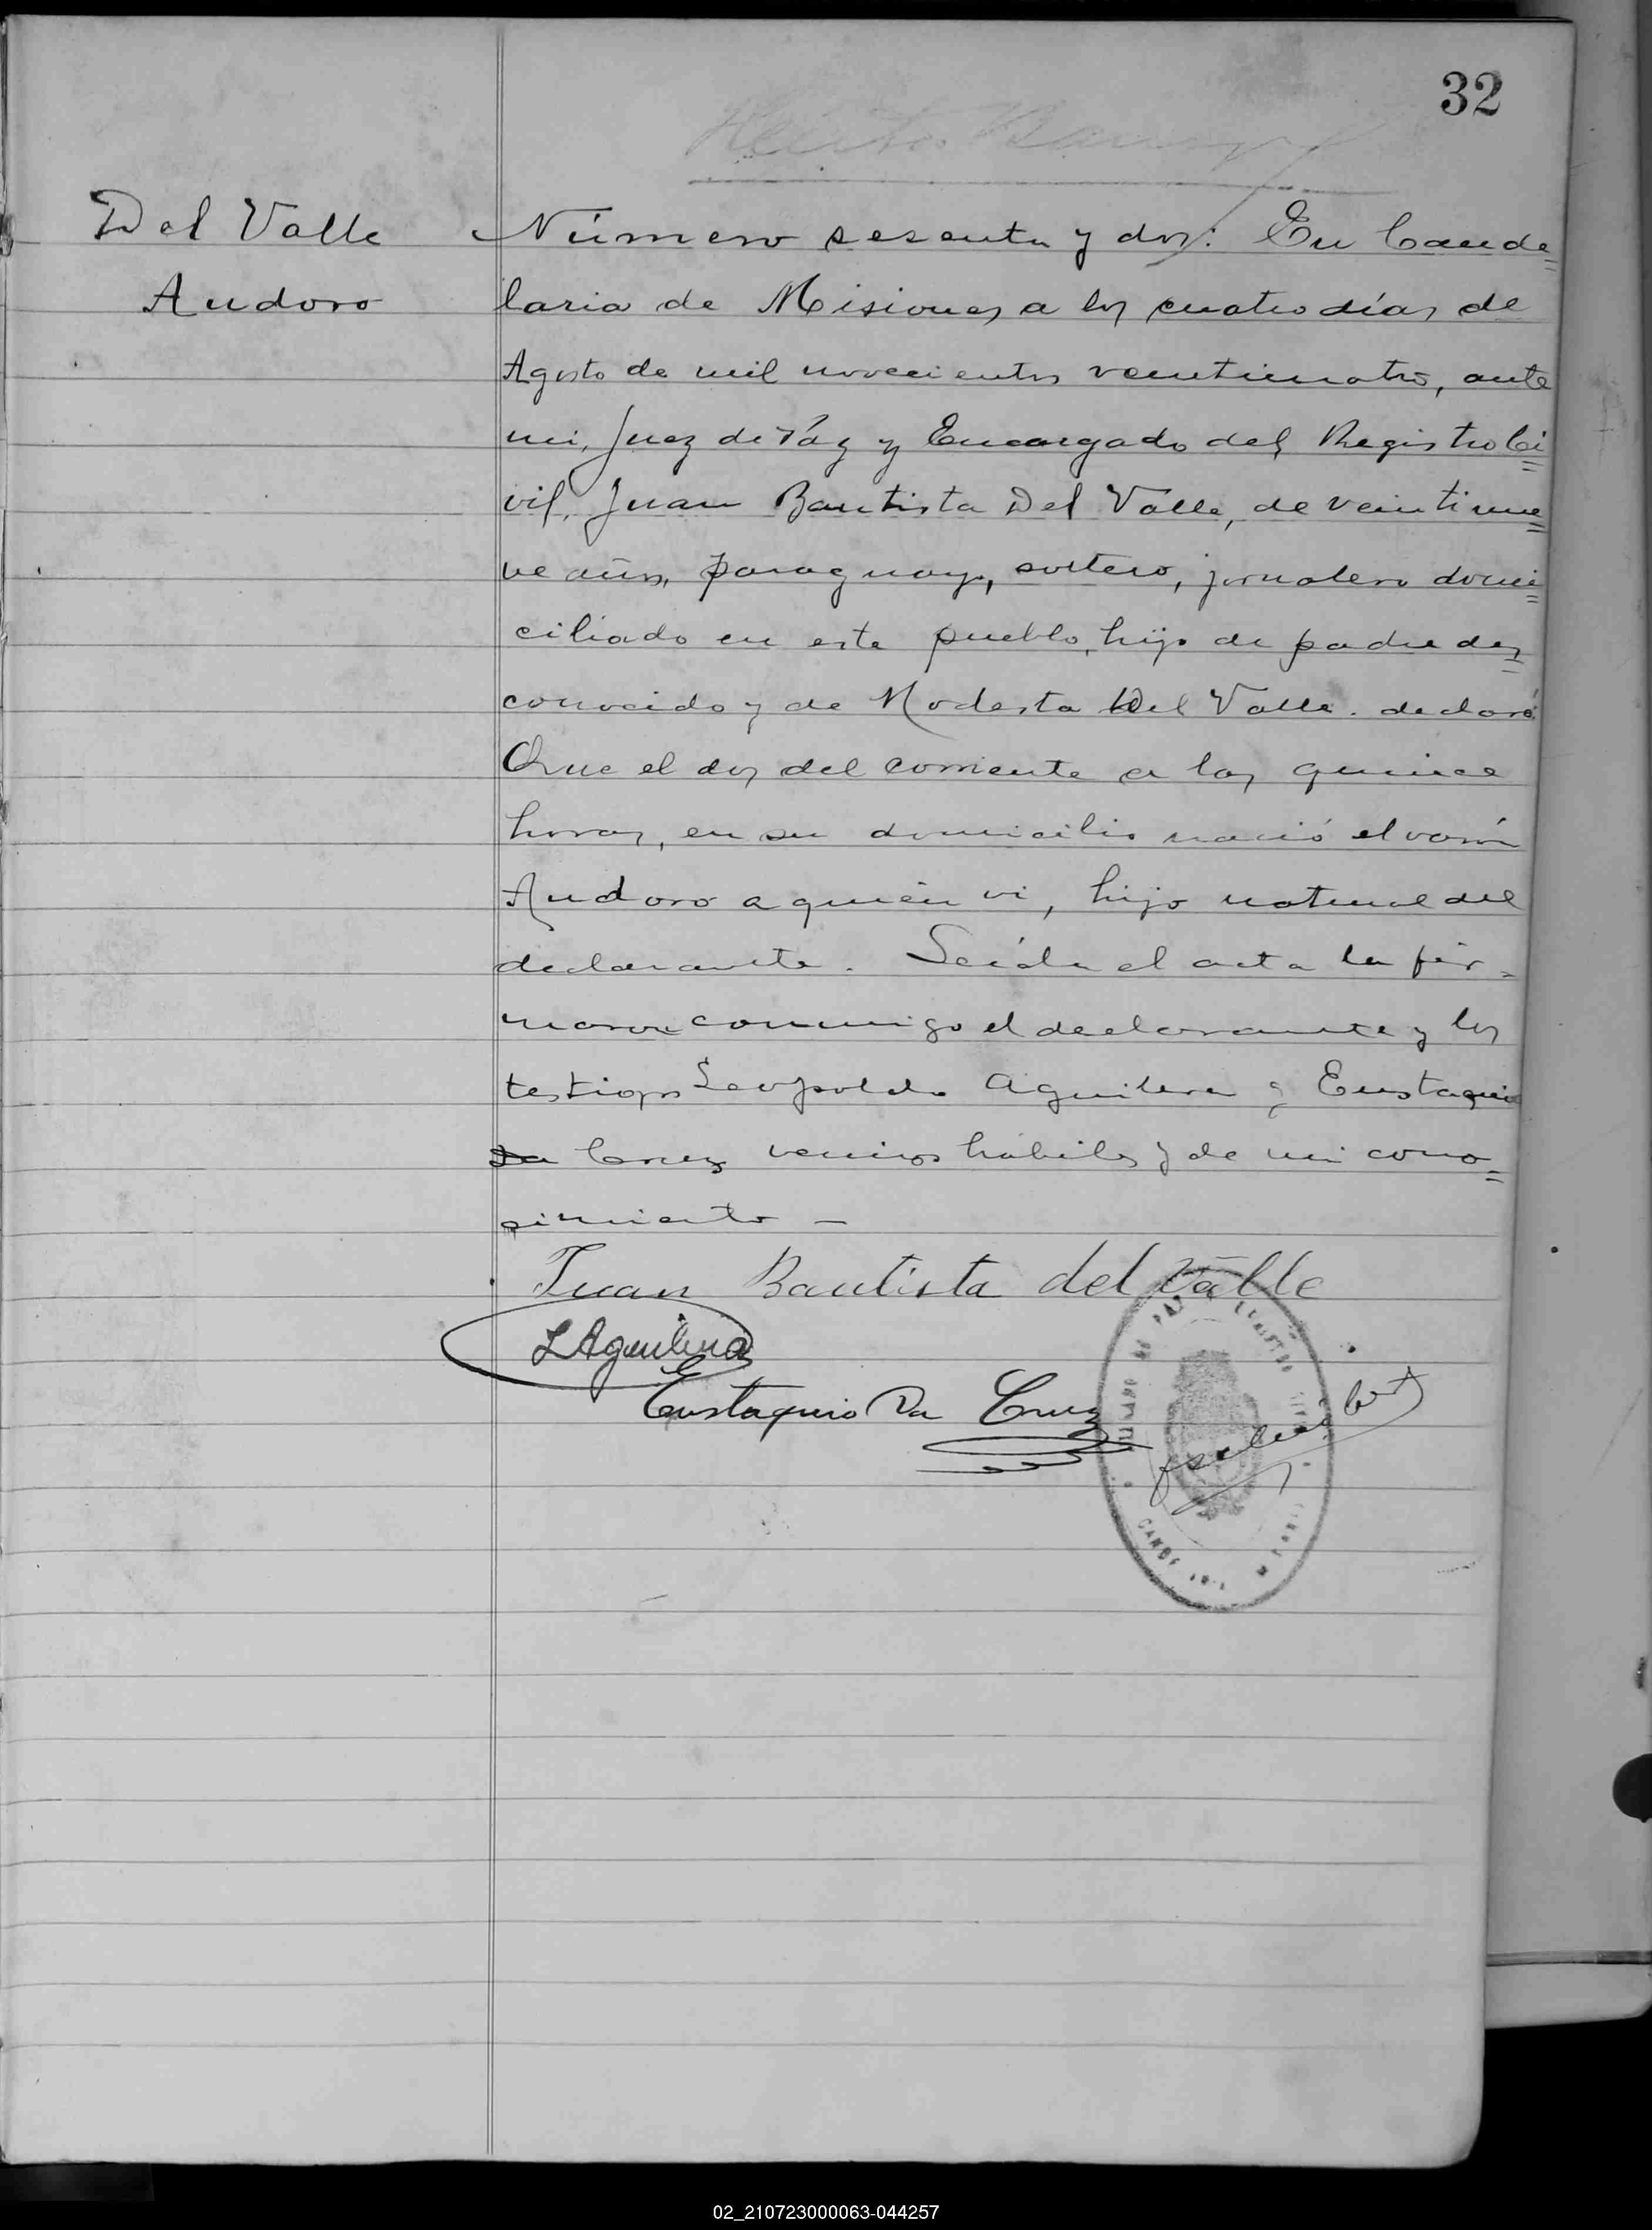 32
Del Valle
Audoro
Número sesenta y dos: En Cande=
laria de Misiones a los cuatro días de
Agosto de mil novecientos veinticuatro, ante
mi, Juez de Páz y Encargado del Registro Ci=
vil, Juan Bautista Del Valle, de veintinue=
ve años, paraguayo, soltero, jornalero domi=
ciliado en este pueblo, hijo de padre des=
conocido y de Modesta Del Valle. declaró:
Que el dos del corriente a las quince
horas, en su domicilio nació el varón
Audoro a quién vi, hijo natural del
declarante. Leída el acta la fir=
maron conmigo el declarante y los
testigos Leopoldo Aguilera y Eustaquio
Da Cruz vecinos hábiles y de mi cono=
cimiento —
Juan Bautista del Valle
L Aguilera
Eustaquio Da Cruz
02_210723000063-044257